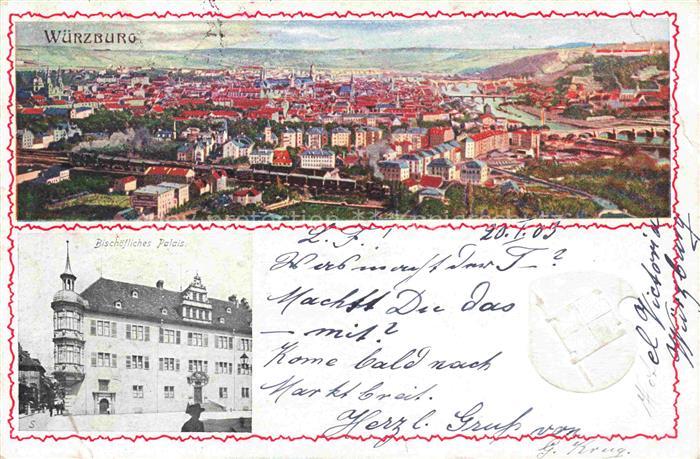 WÜRZBURG
Bischöfliches Palais.
S
L. F.! 20.I.03
Was macht der T–?
Machst Du das
– mit?
Kome bald nach
Marktbreit.
Herzl. Gruß von
G. Krug.
Hotel Victoria
Würzburg